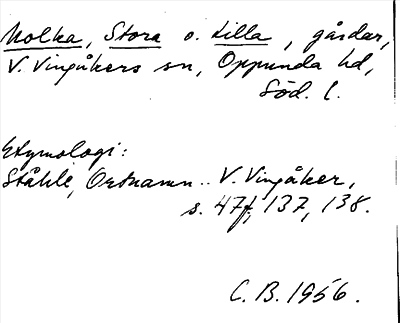 Molka, Stora o. Lilla, gårdar,
V. Vingåkers sn, Oppunda hd,
Söd. l.
Etymologi:
Ståhle, Ortnamn .. V. Vingåker,
s. 47f, 137, 138.
C. B. 1956.